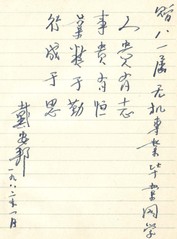 赠八一届无机专業毕業同学
人贵有志
事贵有恒
業精于勤
行成于思
戴安邦
一九八二年一月